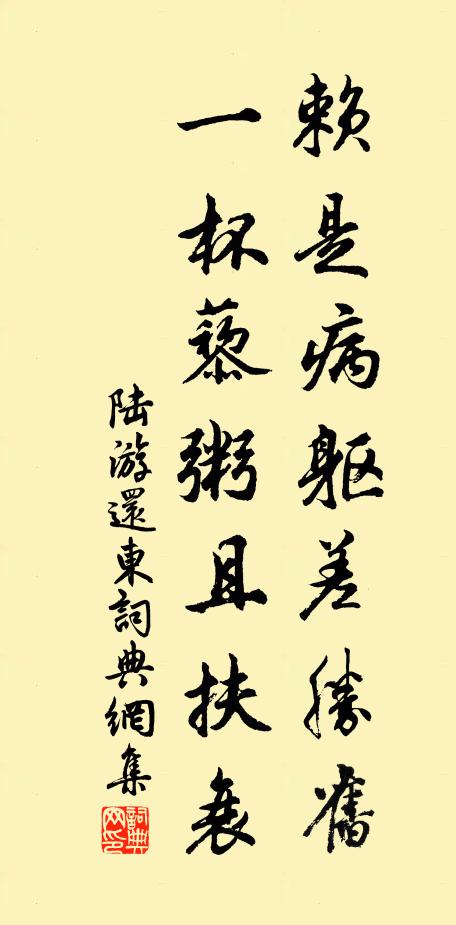 賴是病軀差勝舊
一杯藜粥且扶衰
陸游還東詞典網集
詞典網印